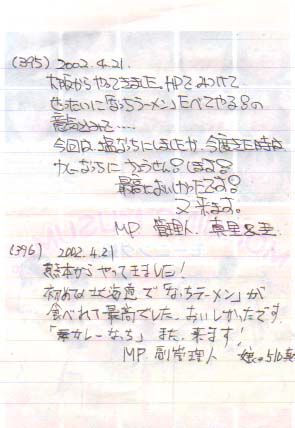 (395) 2002.4.21.
大阪からやってきました。HPでみつけて
ぜったいに「なっちラーメン」たべてやる!の
意気ごみで‥‥
今回は、塩なっちにしましたが、今度きた時は
なっちに ちょうせん!します!
最高においしかったです!
又来ます。
MP 管理人 真里
(396) 2002.4.21
熊本からやってきました!
初めての北海道で「なっちラーメン」が
食べれて最高でした。おいしかったです。
「カレーなっち」また、来ます!
MP 副管理人